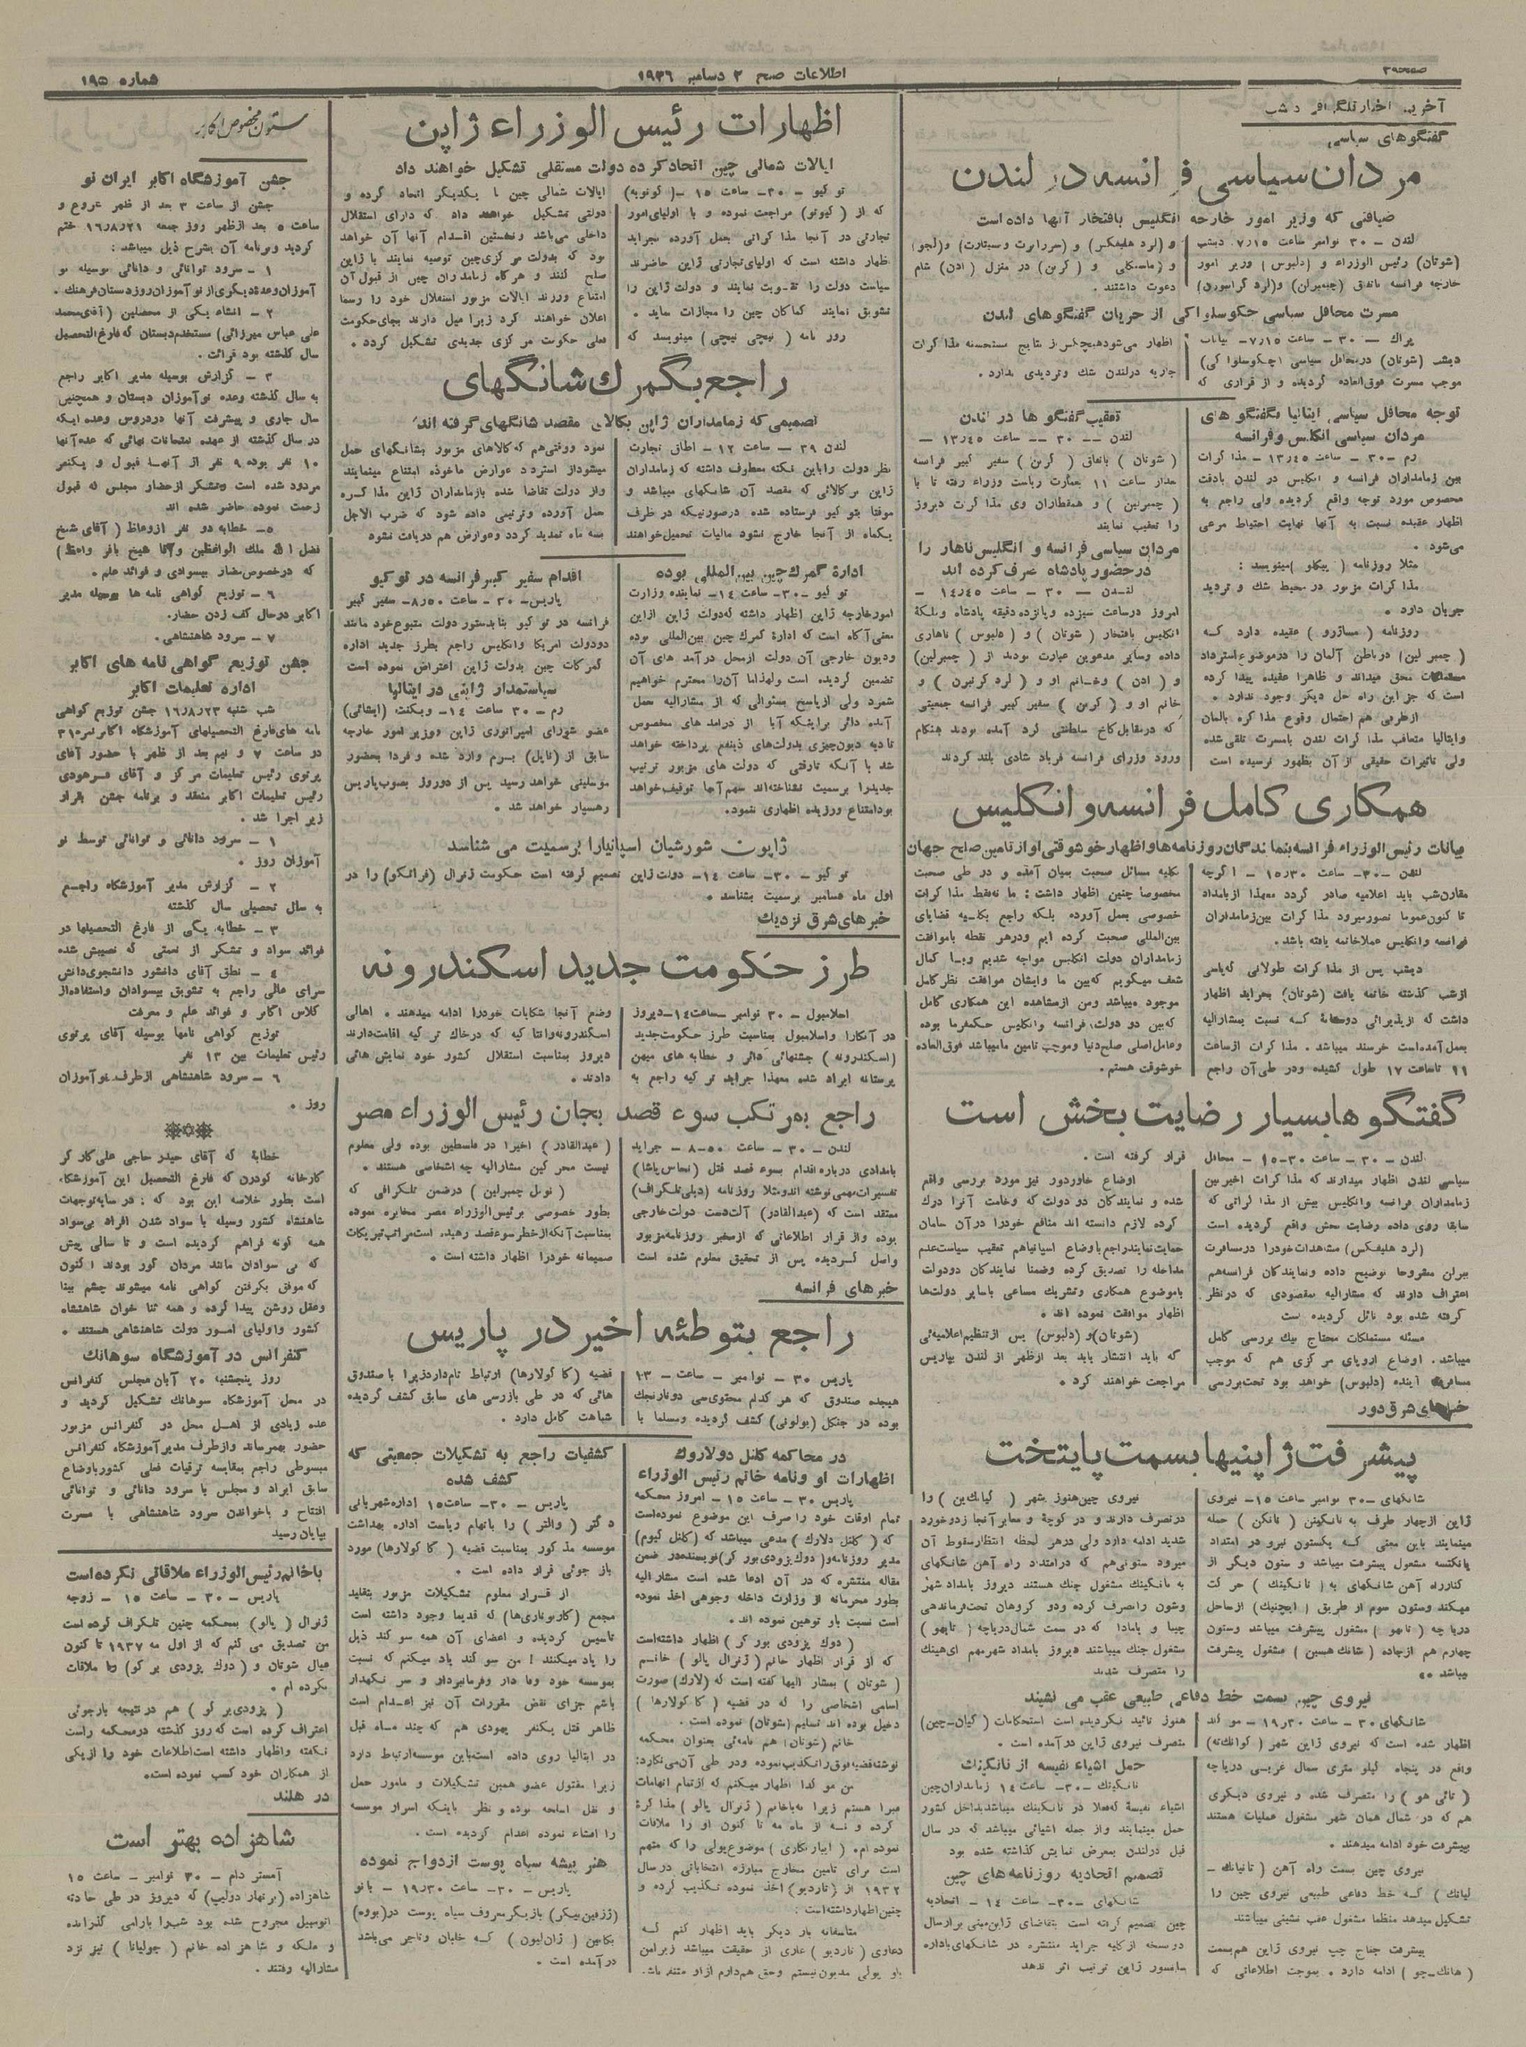 صفحه ۳
اطلاعات صبح ۲ دسامبر ۱۹۳۶
شماره ۱۹۵
آخرین اخبار تلگرافی دیشب
گفتگوهای سیاسی
مردان سیاسی فرانسه در لندن
ضیافتی که وزیر امور خارجه انگلیس بافتخار آنها داده است
لندن - ۳۰ نوامبر ساعت ۷٫۱۵ دیشب
(شوتان) رئیس الوزراء و (دلبوس) وزیر امور
و (لرد هلیفکس) و (سررابرت وسیتارت)
و (کربن) در منزل (ادن) شام
دعوت داشتند.
مسرت محافل سیاسی چکوسلواکی از جریان گفتگوهای لندن
پراگ - ۳۰ - ساعت ۷٫۱۵ - بیانات
دیشب (شوتان) در محافل سیاسی (چکوسلواکی)
موجب مسرت فوق‌العاده گردیده و از قراری که
اظهار می‌شود هیچکس از نتایج مستحسنه مذاکرات
جاریه در لندن شک و تردیدی ندارد.
توجه محافل سیاسی ایتالیا بگفتگوهای
مردان سیاسی انگلیس و فرانسه
رم - ۳۰ - ساعت ۱۳٫۴۵ - مذاکرات
بین زمامداران فرانسه و انگلیس در لندن بادقت
مخصوص مورد توجه واقع گردیده ولی راجع به
اظهار عقیده نسبت به آنها نهایت احتیاط مرعی
می‌شود.
مذاکرات مزبور در محیط شک و تردید
جریان دارد.
روزنامه (مساژرو) عقیده دارد که
است که جز این راه حل دیگر وجود ندارد.
تعقیب گفتگوها در لندن
لندن - ۳۰ - ساعت ۱۳٫۴۵ -
(شوتان) باتفاق (کربن) سفیر کبیر فرانسه
مقدار ساعت ۱۱ بعمارت ریاست وزراء رفته تا با
(چمبرلین) و همقطاران وی مذاکرات دیروز
را تعقیب نمایند
مردان سیاسی فرانسه و انگلیس ناهار را
در حضور پادشاه صرف کرده اند
لندن - ۳۰ - ساعت ۱۴٫۴۵ -
امروز در ساعت سیزده و پانزده دقیقه پادشاه و ملکه
انگلیس بافتخار (شوتان) و (دلبوس) ناهاری
داده و سایر مدعوین عبارت بودند از (چمبرلین)
و (ادن) و خانم او و (لرد کرنبرن) و
خانم او و (کربن) سفیر کبیر فرانسه جمعیتی
که در مقابل کاخ سلطنتی گرد آمده بودند هنگام
ورود وزرای فرانسه فریاد شادی بلند کردند
همکاری کامل فرانسه و انگلیس
بیانات رئیس الوزراء فرانسه بنمایندگان روزنامه‌ها و اظهار خوشوقتی او از تامین صلح جهان
لندن - ۳۰ - ساعت ۱۵٫۳۰ - اگرچه
مقارن شب باید اعلامیه صادر گردد معهذا از بامداد
تا کنون عموما تصور میرود مذاکرات بین زمامداران
فرانسه و انگلیس عملا خاتمه یافته باشد.
دیشب پس از مذاکرات طولانی که پاسی
از شب گذشته خاتمه یافت (شوتان) بجراید اظهار
داشت که از پذیرائی دوستانهٔ که نسبت بمشارالیه
بعمل آمده است خرسند میباشد. مذاکرات از ساعت
۱۱ تا ساعت ۱۷ طول کشیده و در طی آن راجع
بکلیه مسائل صحبت بمیان آمده و در طی صحبت
مخصوصا چنین اظهار داشت: ما نه‌فقط مذاکرات
خصوصی بعمل آورده بلکه راجع بکلیه قضایای
بین‌المللی صحبت کرده ایم و در هر نقطه با موافقت
زمامداران دولت انگلیس مواجه شدیم و با کمال
شعف میگویم که بین ما و ایشان موافقت نظر کامل
موجود میباشد و من از مشاهده این همکاری کامل
که بین دو دولت، فرانسه و انگلیس حکمفرما بوده
و عامل اصلی صلح دنیا و موجب تامین ما میباشد فوق‌العاده
خوشوقت هستم.
گفتگوها بسیار رضایت بخش است
لندن - ۳۰ - ساعت ۱۵٫۳۰ - محافل
سیاسی لندن اظهار میدارند که مذاکرات اخیر بین
زمامداران فرانسه و انگلیس بیش از مذاکراتی که
سابقا روی داده رضایت بخش واقع گردیده است
(لرد هلیفکس) مشاهدات خود را در مسافرت
ببرلن مشروحا توضیح داده و نمایندگان فرانسه هم
اعتراف دارند که مشارالیه بمقصودی که در نظر
گرفته شده بود نائل گردیده است
مسئله مستملکات محتاج بیک بررسی کامل
میباشد. اوضاع اروپای مرکزی هم که موجب
مسافرت آینده (دلبوس) خواهد بود تحت بررسی
قرار گرفته است.
اوضاع خاوردور نیز مورد بررسی واقع
شده و نمایندگان دو دولت که وخامت آنرا درک
کرده لازم دانسته اند منافع خود را در آن سامان
حمایت نمایند راجع باوضاع اسپانیا هم تعقیب سیاست عدم
مداخله را تصدیق کرده و ضمنا نمایندگان دو دولت
باموضوع همکاری و تشریک مساعی با سایر دولت‌ها
اظهار موافقت نموده اند.
(شوتان) و (دلبوس) پس از تنظیم اعلامیه‌ئی
که باید انتشار یابد بعد از ظهر از لندن بپاریس
مراجعت خواهند کرد.
خبرهای شرق دور
پیشرفت ژاپنیها بسمت پایتخت
شانگهای - ۳۰ نوامبر ساعت ۱۵ - نیروی
ژاپن از چهار طرف به نانکینن (نانکن) حمله
مینمایند باین معنی که یکستون نیرو در امتداد
یانکتسه مشغول پیشرفت میباشد و ستون دیگر از
کنار راه آهن شانگهای به (نانکینک) حرکت
میکند و ستون سوم از طریق (ایچنیک) از ساحل
دریاچه (تایهو) مشغول پیشرفت میباشد وستون
چهارم هم از جاده (شانک هسین) مشغول پیشرفت
میباشد
نیروی چین هنوز شهر (کیانک‌ین) را
در تصرف دارند و در کوچه و معابر آنجا زد و خورد
شدید ادامه دارد ولی در هر لحظه انتظار سقوط آن
میرود ستونی هم که در امتداد راه آهن شانگهای
به نانکینک مشغول جنک هستند دیروز بامداد شهر
وشون را تصرف کرده و دو گروهان تحت فرماندهی
چیبا و یامادا که در سمت شمال دریاچه (تایهو)
مشغول جنک میباشند دیروز بامداد شهر مهم ای‌هینک
را متصرف شدند
نیروی چین بسمت خط دفاعی طبیعی عقب می نشیند
شانگهای ۳۰ - ساعت ۱۹٫۳۰ -
اظهار شده است که نیروی ژاپن شهر (کوانک‌ته)
واقع در پنجاه کیلو متری شمال غربی دریاچه
(تائی هو) را متصرف شده و نیروی دیگری
هم که در شمال همان شهر مشغول عملیات هستند
پیشرفت خود ادامه میدهند.
نیروی چین بسمت راه آهن (نانیانک -
لیانک) که خط دفاعی طبیعی نیروی چین را
تشکیل میدهد منظما مشغول عقب نشینی میباشند
پیشرفت جناح چپ نیروی ژاپن هم بسمت
(هانک‌چو) ادامه دارد. بموجب اطلاعاتی که
هنوز تائید نگردیده است استحکامات (کیان‌چین)
متصرف نیروی ژاپن درآمده است.
حمل اشیاء نفیسه از نانکینک
نانکینک - ۳۰ - ساعت ۱۴ زمامداران چین
اشیاء نفیسهٔ که فعلا در نانکینک میباشد بداخل کشور
حمل مینمایند و از جمله اشیائی میباشد که در سال
قبل در لندن بمعرض نمایش گذاشته شده بود
تصمیم اتحادیه روزنامه های چین
شانگهای - ۳۰ - ساعت ۱۴ - اتحادیه
چین تصمیم گرفته است بتقاضای ژاپن مبنی بر ارسال
دو نسخه از کلیه جراید منتشره در شانگهای باداره
سانسور ژاپن ترتیب اثر ندهد
اظهارات رئیس الوزراء ژاپن
ایالات شمالی چین اتحاد کرده دولت مستقلی تشکیل خواهند داد
توکیو - ۳۰ - ساعت ۱۵ - (کونویه)
که از (کیوتو) مراجعت نموده و با اولیای امور
تجارتی در آنجا مذاکراتی بعمل آورده بجراید
اظهار داشته است که اولیای تجارتی ژاپن حاضرند
سیاست دولت را تقویت نمایند و دولت ژاپن را
تشویق نمایند کماکان چین را مجازات نماید.
روزنامه (نیچی نیچی) مینویسد که
ایالات شمالی چین با یکدیگر اتحاد کرده و
دولتی تشکیل خواهند داد که دارای استقلال
داخلی می‌باشد و نخستین اقدام آنها آن خواهد
بود که بدولت مرکزی چین توصیه نمایند با ژاپن
صلح کنند و هرگاه زمامداران چین از قبول آن
امتناع ورزند ایالات مزبور استقلال خود را رسما
اعلان خواهند کرد زیرا میل دارند بجای حکومت
فعلی حکومت مرکزی جدیدی تشکیل گردد.
راجع بگمرک شانگهای
تصمیمی که زمامداران ژاپن بکالای مقصد شانگهای گرفته اند
لندن ۲۹ - ساعت ۱۲ - اطاق تجارت
نظر دولت را باین نکته معطوف داشته که زمامداران
ژاپن هر کالائی که مقصد آن شانگهای میباشد و
موقتا بتوکیو فرستاده شده درصورتیکه در ظرف
یکماه از آنجا خارج نشود مالیات تحمیل خواهند
نمود و وقتی هم که کالاهای مزبور بشانگهای حمل
میشود از استرداد عوارض ماخوذه امتناع مینمایند
و از دولت تقاضا شده بازمامداران ژاپن مذاکره
بعمل آورده و ترتیبی داده شود که ضرب الاجل
بسه ماه تمدید گردد و عوارض هم دریافت نشود
ادارهٔ گمرک چین بین‌المللی بوده
توکیو - ۳۰ - ساعت ۱۴ - نماینده وزارت
امور خارجه ژاپن اظهار داشته که دولت ژاپن از این
معنی آگاه است که ادارهٔ گمرک چین بین‌المللی بوده
و دیون خارجی آن دولت از محل درآمد های آن
تضمین گردیده است و لهذا ما آن را محترم خواهیم
شمرد ولی از پاسخ بسئوالی که از مشارالیه بعمل
آمده دائر براینکه آیا از درآمد های مخصوص
تادیه دیون چیزی بدولت‌های ذینفع پرداخته خواهد
شد یا آنکه تا وقتی که دولت های مزبور ترتیب
جدید را برسمیت نشناخته‌اند سهم آنها توقیف خواهد
بود امتناع ورزیده اظهاری ننمود.
اقدام سفیر کبیر فرانسه در توکیو
پاریس - ۳۰ - ساعت ۸٫۵۰ - سفیر کبیر
فرانسه در توکیو بنا بدستور دولت متبوع خود مانند
دو دولت امریکا و انگلیس راجع بطرز جدید اداره
گمرکات چین بدولت ژاپن اعتراض نموده است
سیاستمدار ژاپنی در ایتالیا
رم - ۳۰ ساعت ۱۴ - ویکنت (ایشائی)
عضو شورای امپراتوری ژاپن و وزیر امور خارجه
سابق از (ناپل) برم وارد شده و فردا بحضور
موسلینی خواهد رسید پس از دو روز بصوب پاریس
رهسپار خواهد شد.
ژاپون شورشیان اسپانیارا برسمیت می شناسد
توکیو - ۳۰ - ساعت ۱۴ - دولت ژاپن تصمیم گرفته است حکومت ژنرال (فرانکو) را در
اول ماه دسامبر برسمیت بشناسد.
خبرهای شرق نزدیک
طرز حکومت جدید اسکندرونه
اسلامبول - ۳۰ نوامبر - ساعت ۱۴ - دیروز
در آنکارا و اسلامبول بمناسبت طرز حکومت جدید
(اسکندرونه) جشنهائی دائر و خطابه های میهن
پرستانه ایراد شده معهذا جراید ترکیه راجع به
وضع آنجا شکایات خود را ادامه میدهند. اهالی
اسکندرونه و انتاکیه که در خاک ترکیه اقامت دارند
دیروز بمناسبت استقلال کشور خود نمایش هائی
دادند.
راجع بمرتکب سوء قصد بجان رئیس الوزراء مصر
لندن - ۳۰ - ساعت ۸٫۵۰ - جراید
بامدادی درباره اقدام بسوء قصد قتل (نحاس پاشا)
تفسیرات مهمی نوشته اند و مثلا روزنامه (دیلی تلگراف)
معتقد است که (عبدالقادر) آلت دست دولت خارجی
بوده و از قرار اطلاعاتی که از مخبر روزنامه مزبور
واصل گردیده پس از تحقیق معلوم شده است
(عبدالقادر) اخیرا در فلسطین بوده ولی معلوم
نیست محرکین مشارالیه چه اشخاصی هستند.
(نویل چمبرلین) در ضمن تلگرافی که
بطور خصوصی برئیس الوزراء مصر مخابره نموده
بمناسبت آنکه از خطر سوء قصد رهیده است مراتب تبریکات
صمیمانه خود را اظهار داشته است.
خبرهای فرانسه
راجع بتوطئه اخیر در پاریس
پاریس ۳۰ - نوامبر - ساعت - ۱۳
هیجده صندوق که هر کدام محتوی سی دو نارنجک
بوده در جنگل (بولونی) کشف گردیده و مسلما با
قضیه (کاگولارها) ارتباط تام دارد زیرا با صندوق
هائی که در طی بازرسی های سابق کشف گردیده
شباهت کامل دارد.
در محاکمه کلنل دولاروک
اظهارات او و نامه خانم رئیس الوزراء
پاریس - ۳۰ - ساعت ۱۵ - امروز محکمه
تمام اوقات خود را صرف این موضوع نموده‌است
که (کلنل دلارک) مدعی میباشد که (کلنل گیوم)
مدیر روزنامه و (دوک پزودی بورکو) نویسنده در ضمن
مقاله منتشره که در آن ادعا شده است مشارالیه
بطور محرمانه از وزارت داخله وجوهی اخذ نموده
است نسبت باو توهین نموده اند.
(دوک پزودی بورکو) اظهار داشته‌است
که از قرار اظهار خانم (ژنرال یالو) خانم
(شوتان) بمشارالیها گفته است که (لارک) صورت
اسامی اشخاصی را که در قضیه (کاکولارها)
دخیل بوده اند تسلیم (شوتان) نموده است.
خانم (شوتان) هم نامه‌ئی بعنوان محکمه
نوشته قضیه فوق را تکذیب نموده و در طی آن می‌نگارد:
من موکدا اظهار میکنم که از تمام اتهامات
مبرا هستم زیرا نه با خانم (ژنرال یالو) مذاکره
کرده و نه از ماه مه تا کنون او را ملاقات
نموده ام. موضوع پولی را که متهم
است برای تامین مخارج مبارزه انتخاباتی در سال
۱۹۳۲ از (تاردیو) اخذ نموده تکذیب کرده و
چنین اظهار داشته است:
متاسفانه بار دیگر باید اظهار کنم که
دعاوی (تاردیو) عاری از حقیقت میباشد زیرا من
باو پولی مدیون نیستم و حق هم دارم از او متنفر باشم.
کشفیات راجع به تشکیلات جمعیتی که
کشف شده
پاریس - ۳۰ - ساعت ۱۵ اداره شهربانی
دکتر (والتر) را باتهام ریاست اداره بهداشت
موسسه مذکور بمناسبت قضیه (کاگولارها) مورد
بازجوئی قرار داده است.
از قرار معلوم تشکیلات مزبور بتقلید
مجمع (کاربوناری‌ها) که قدیما وجود داشته است
تاسیس گردیده و اعضای آن همه سوگند ذیل
را یاد میکنند! من سوگند یاد میکنم که نسبت
بموسسه خود وفادار و فرمانبردار و سر نگهدار
باشم جزای نقض مقررات آن نیز اعدام است
ظاهر قتل یکنفر یهودی هم که چند ماه قبل
در ایتالیا روی داده است باین موسسه ارتباط دارد
زیرا مقتول عضو همین تشکیلات و مامور حمل
و نقل اسلحه بوده و نظر باینکه اسرار موسسه
را افشاء نموده اعدام گردیده است.
هنر پیشه سیاه پوست ازدواج نموده
پاریس - ۳۰ - ساعت ۱۹٫۳۰ - بانو
(ژزفین بیکر) بازیگر معروف سیاه پوست در (بووه)
بکابین (ژان لیون) که خلبان و تاجر می‌باشد
درآمده است.
ستون مخصوص اکابر
جشن آموزشگاه اکابر ایران نو
جشن از ساعت ۳ بعد از ظهر شروع و
ساعت ۵ بعد از ظهر روز جمعه ۱۶/۸/۲۱ ختم
گردید و برنامه آن بشرح ذیل میباشد:
۱ - سرود توانائی و دانائی بوسیله نو
آموزان و عده دیگری از نوآموزان روز دستان فرهنگ.
۲ - انشاء یکی از محصلین (آقای محمد
علی عباس میرزائی) مستخدم دبستان که فارغ التحصیل
سال گذشته بود قرائت.
۳ - گزارش بوسیله مدیر اکابر راجع
به سال گذشته و عده نوآموزان دبستان و همچنین
سال جاری و پیشرفت آنها در دروس و عده اینکه
در سال گذشته از عهده امتحانات نهائی که عده آنها
۱۰ نفر بوده ۹ نفر از آنها قبول و یکنفر
مردود شده است و تشکر از حضار مجلس که قبول
زحمت نموده حاضر شده اند
۵ - خطابه دو نفر از وعاظ (آقای شیخ
فضل الله ملک الواعظین و آقا شیخ باقر واعظ)
که درخصوص مضار بیسوادی و فوائد علم.
۶ - توزیع گواهی نامه ها بوسیله مدیر
اکابر در حال کف زدن حضار.
۷ - سرود شاهنشاهی.
جشن توزیع گواهی نامه های اکابر
اداره تعلیمات اکابر
شب شنبه ۱۶/۸/۲۳ جشن توزیع گواهی
نامه های فارغ التحصیلهای آموزشگاه اکابر نمره ۳۱
در ساعت ۷ و نیم بعد از ظهر با حضور آقای
پرتوی رئیس تعلیمات مرکز و آقای فرهودی
رئیس تعلیمات اکابر منعقد و برنامه جشن بقرار
زیر اجرا شد.
۱ - سرود دانائی و توانائی توسط نو
آموزان روز.
۲ - گزارش مدیر آموزشگاه راجع
به سال تحصیلی سال گذشته
۳ - خطابه یکی از فارغ التحصیلها در
فوائد سواد و تشکر از نعمتی که نصیبش شده
۴ - نطق آقای دانشور دانشجوی دانش
سرای عالی راجع به تشویق بیسوادان و استفاده از
کلاس اکابر و فوائد علم و معرفت
توزیع گواهی نامها بوسیله آقای پرتوی
رئیس تعلیمات بین ۱۳ نفر
۶ - سرود شاهنشاهی از طرف نوآموزان
روز.
خطابهٔ که آقای حیدر حاجی علی کارگر
کارخانه کودرن که فارغ التحصیل این آموزشگاه
است بطور خلاصه این بود که: در سایه توجهات
شاهنشاه کشور وسیله با سواد شدن افراد بی‌سواد
همه گونه فراهم گردیده است و تا سالی پیش
که بی سوادان مانند مردان کور بودند اکنون
که موفق بگرفتن گواهی نامه میشوند چشم بینا
و عقل روشن پیدا کرده و همه ثنا خوان شاهنشاه
کشور و اولیای امور دولت شاهنشاهی هستند.
کنفرانس در آموزشگاه سوهانک
روز پنجشنبه ۲۰ آبان مجلس کنفرانس
در محل آموزشگاه سوهانک تشکیل گردید و
عده زیادی از اهل محل در کنفرانس مزبور
حضور بهمرساند و از طرف مدیر آموزشگاه کنفرانس
مبسوطی راجع بمقایسه ترقیات فعلی کشور با اوضاع
سابق ایراد و مجلس با سرود دانائی و توانائی
افتتاح و باخواندن سرود شاهنشاهی با مسرت
بپایان رسید
باخانم رئیس الوزراء ملاقاتی نکرده است
پاریس - ۳۰ - ساعت ۱۵ - زوجه
ژنرال (یالو) بمحکمه چنین تلگراف کرده است
من تصدیق می کنم که از اول مه ۱۹۳۷ تا کنون
عیال شوتان و (دوک پزودی برکو) را ملاقات
نکرده ام.
(پزودی برکو) هم در نتیجه بازجوئی
اعتراف کرده است که روز گذشته در محکمه راست
نگفته و اظهار داشته است اطلاعات خود را از یکی
از همکاران خود کسب نموده است.
در هلند
شاهزاده بهتر است
آمستردام - ۳۰ نوامبر - ساعت ۱۵
شاهزاده (برنهار دولیپ) که دیروز در طی حادثه
اتومبیل مجروح شده بود شب را بارامی گذرانده
و ملکه و شاهزاده خانم (جولیانا) نیز نزد
مشارالیه رفتند.